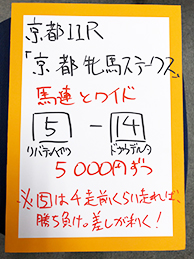 京都11R
「京都牝馬ステークス」
馬連とワイド
5 - 14
リバーラ ドロップオブライト
5000円ずつ
※5は4走前くらい走れば、
勝ち負け。差しが利く!